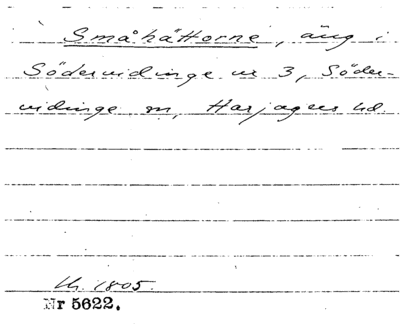 Småhåttorne, äng i
Södervidinge nr 3, Söder-
vidinge sn, Harjagers hd.
Lh. 1805.
Nr 5622.